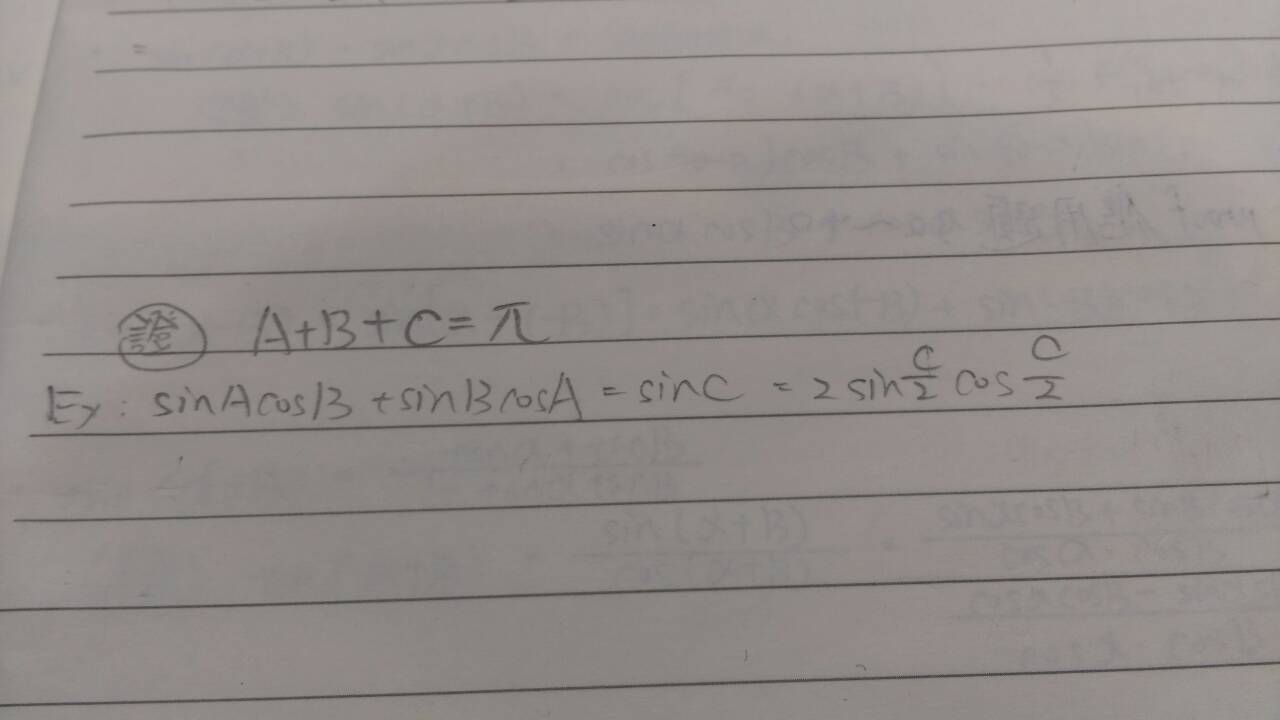 =
證 A+B+C=π
Ex: sinAcosB+sinBcosA = sinC = 2 sin C/2 cos C/2